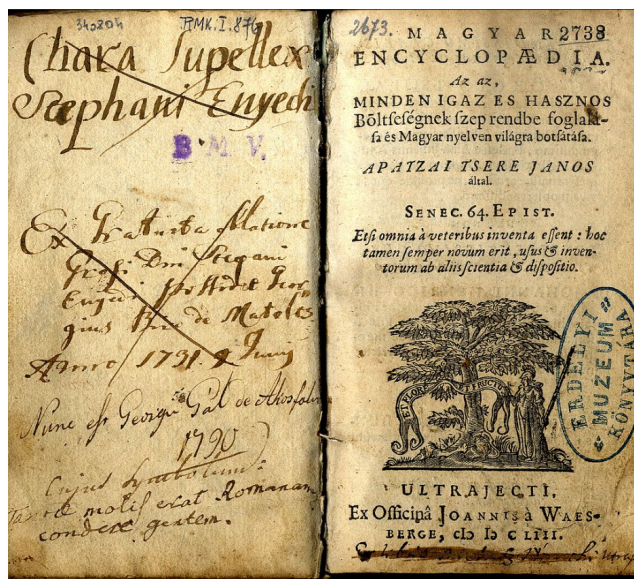 340204 RMK.I.876
Chara Supellex
Stephani Enyedi
B. M. V.
Ex Gratuita
Stephani
Enyedi Possidet Geor
gius de
Anno 1731. 9 Junij
Nunc est Georgii Gál de
1790
Cujus Symbolum:
Tantae molis erat Romanam
condere gentem.
2673. 2738
MAGYAR
ENCYCLOPÆDIA.
Az az,
MINDEN IGAZ ES HASZNOS
Bőltseségnek szep rendbe foglalá-
sa és Magyar nyelven világra botsátása.
APATZAI TSERE JANOS
által.
SENEC. 64. EPIST.
Etsi omnia à veteribus inventa essent: hoc
tamen semper novum erit, usus & inven-
torum ab aliis scientia & dispositio.
ET FLORE ET FRUCTU
ERDÉLYI
MUZEUM
KÖNYVTÁRA
ULTRAJECTI,
Ex Officinâ JOANNIS à WAES-
BERGE, cIↃ IↃ C LIII.